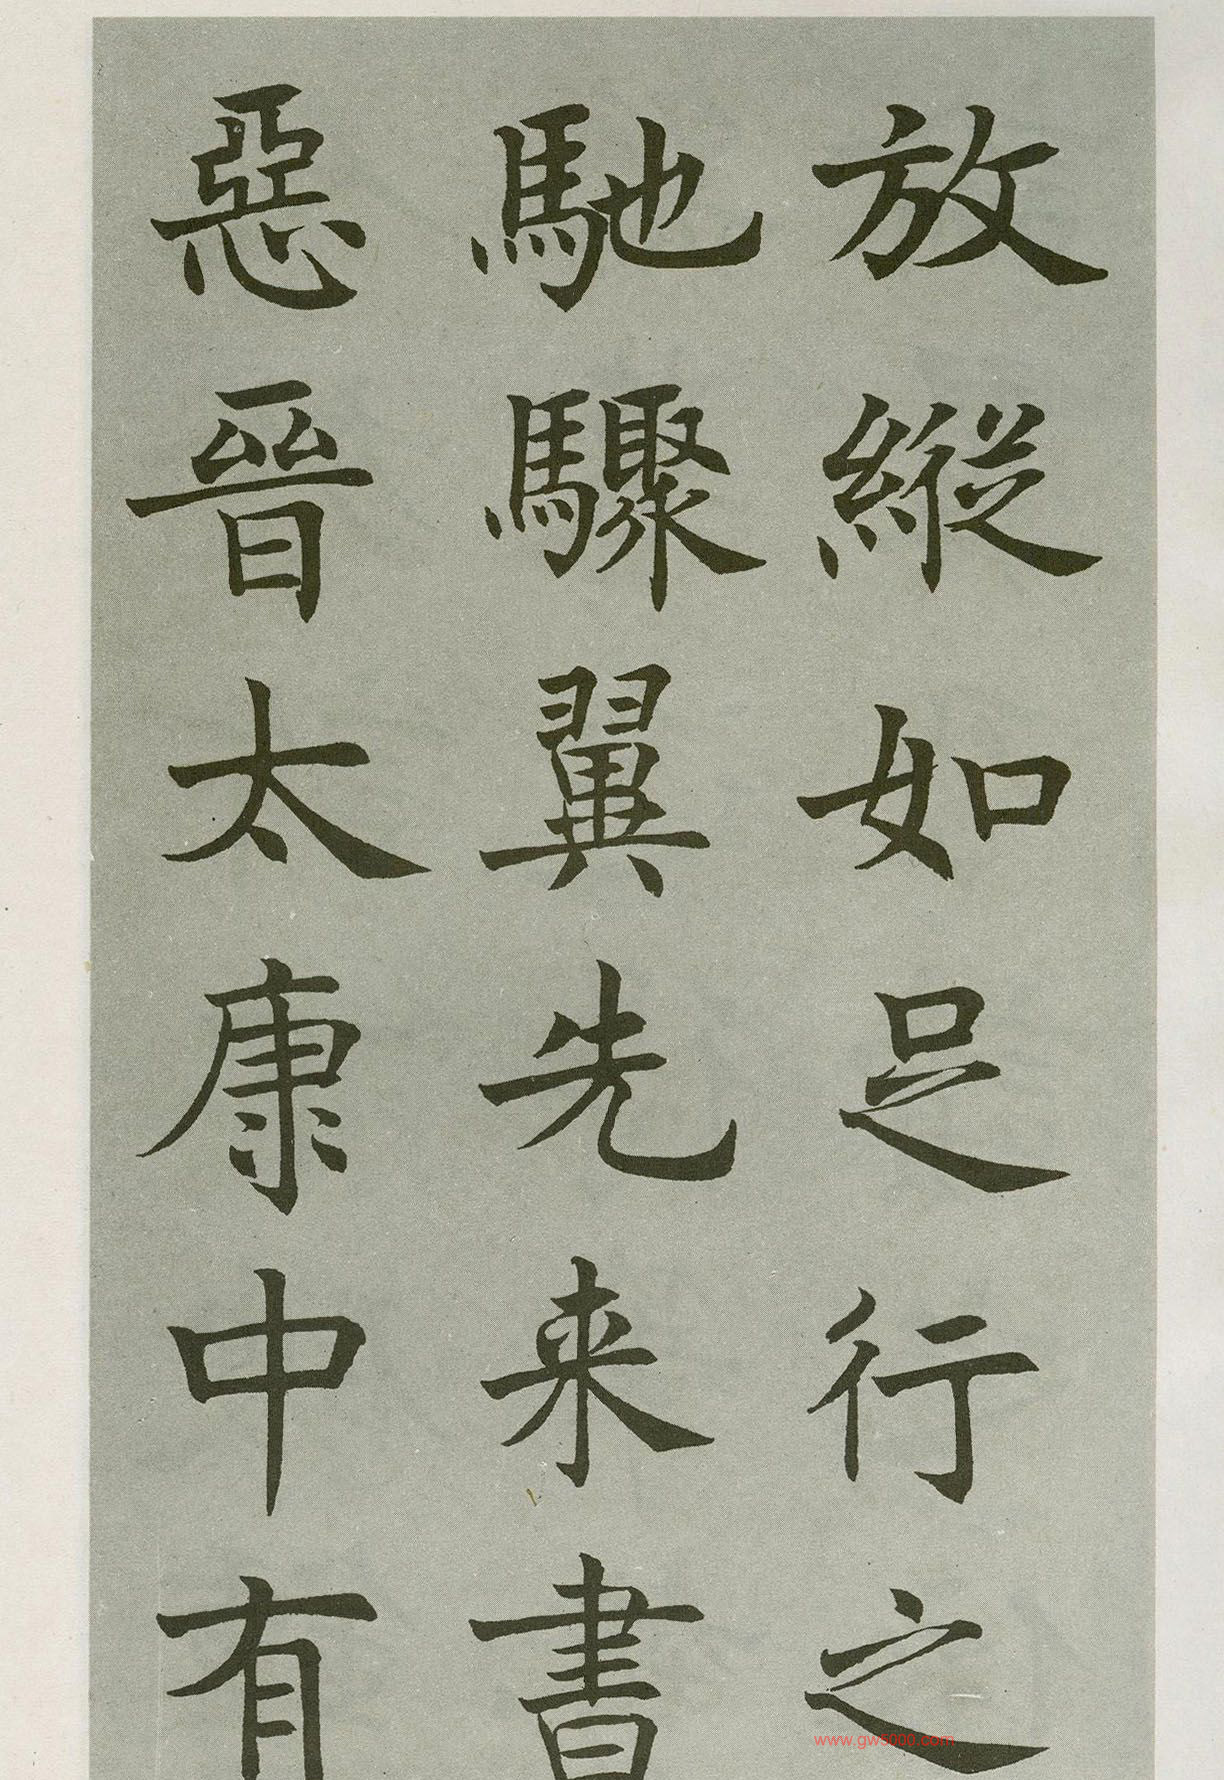 放縱如足行之
馳驟翼先来書
惡晉太康中有
www.gw5000.com